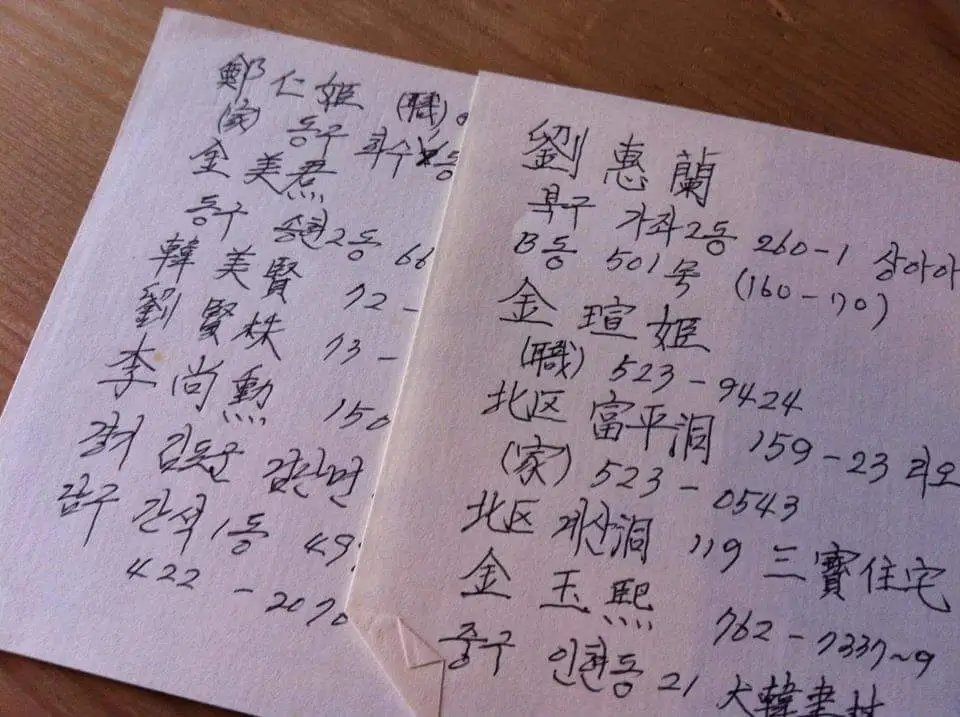 鄭仁姬 (職)
(家) 동구 화수동
金美
동구 송현2동 66
韓美賢 72-
劉賢株 73-
李尚勲 150
경기 김포군 검단면
남구 간석1동 49
422-2070
劉惠蘭
북구 가좌2동 260-1 상아아
B동 501号 (160-70)
金瑄姬
(職) 523-9424
北区 富平洞 159-23 리오
(家) 523-0543
北区 계산洞 119 三寶住宅
金玉熙 762-7337~9
중구 인현동 21 大韓書林